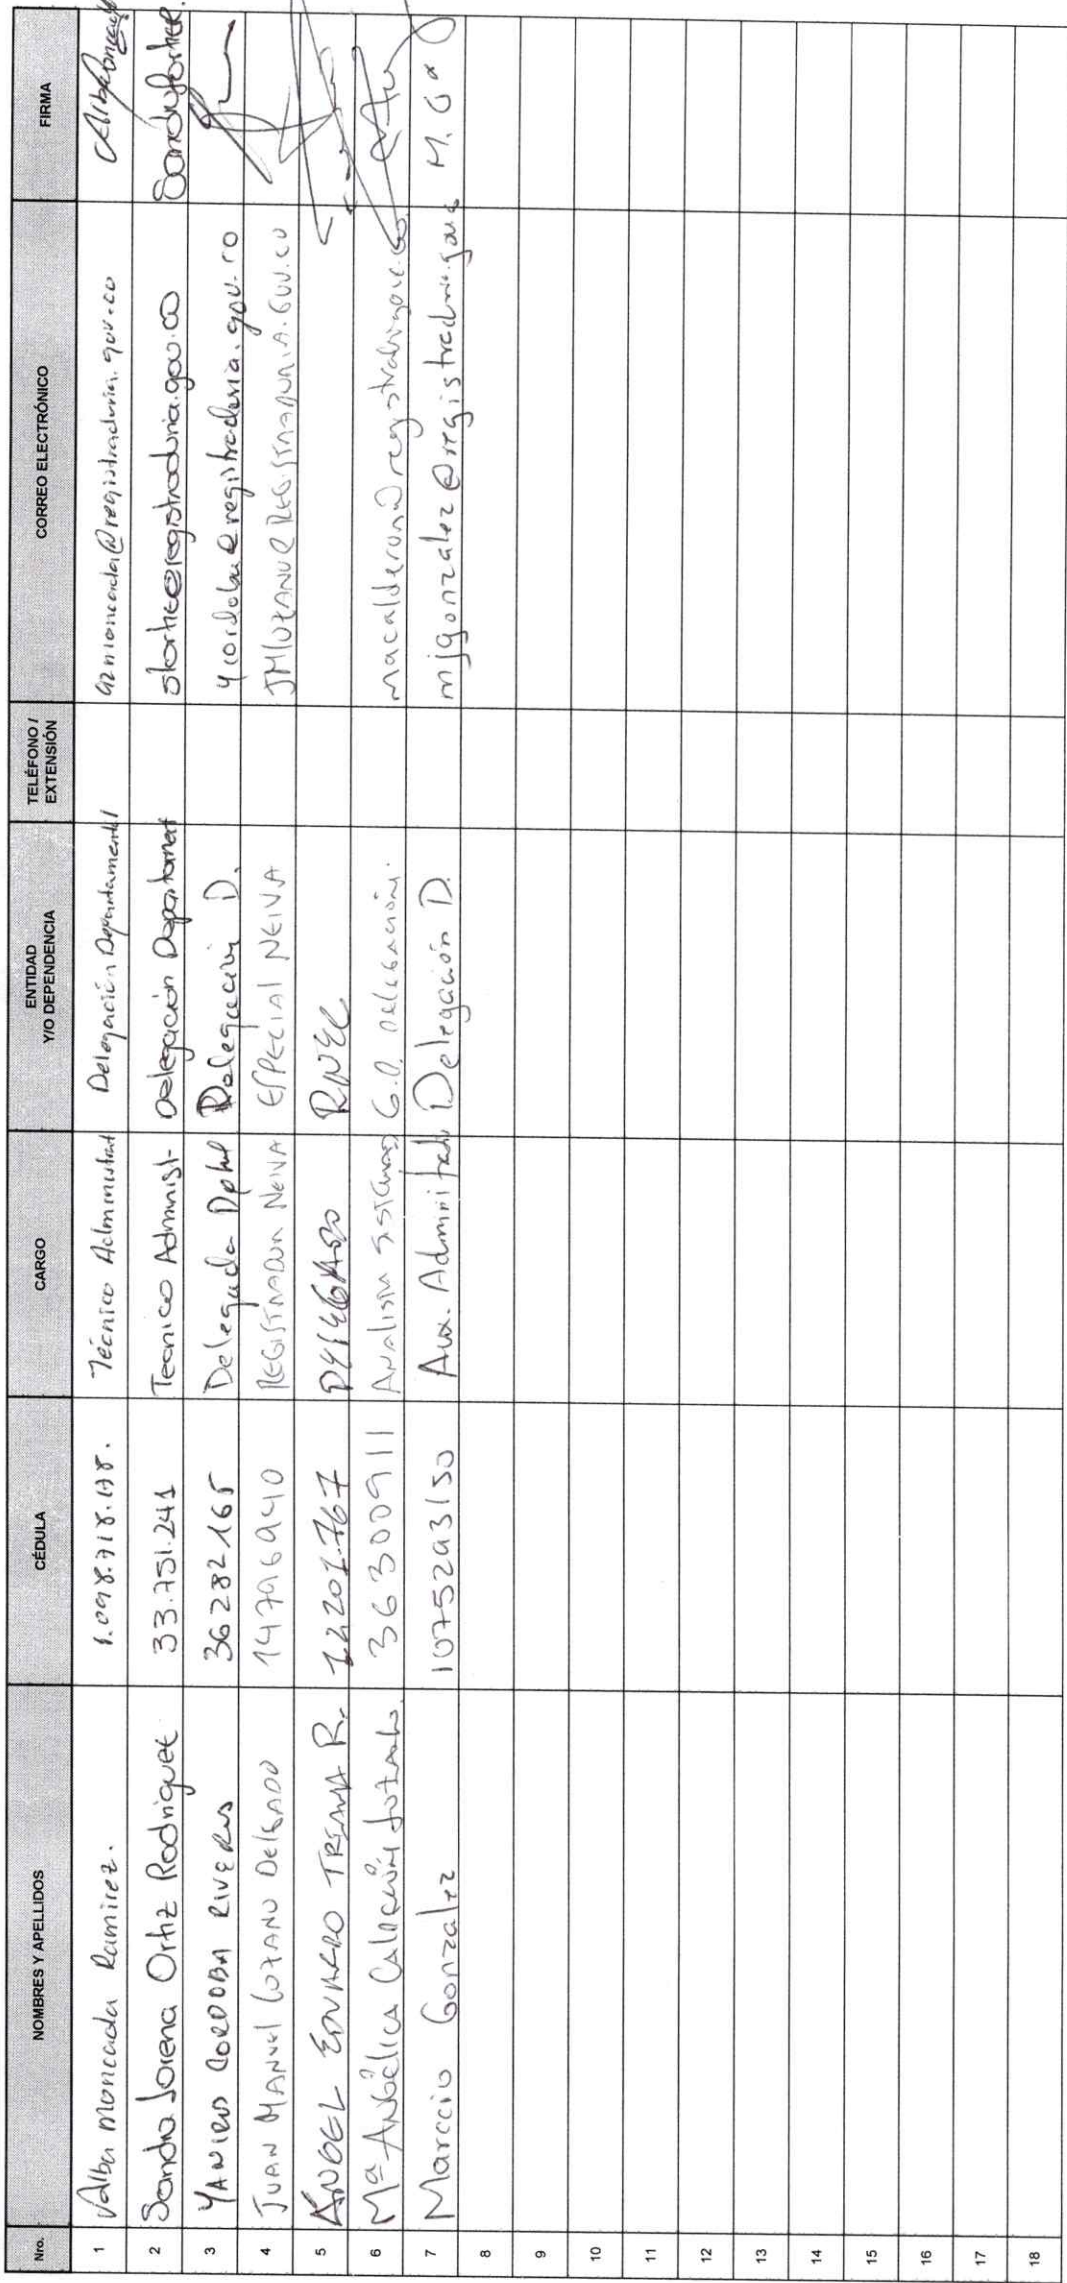 Nro. NOMBRES Y APELLIDOS CÉDULA CARGO ENTIDAD Y/O DEPENDENCIA TELÉFONO / EXTENSIÓN CORREO ELECTRÓNICO FIRMA
1 Alba Moncada Ramirez. Técnico Administrat Delegación Departamental
2 Sandra Lorena Ortiz Rodriguez 33.751.241 Tecnico Administ- Delegación Departament
3 YANIRIS CORDOBA RIVERAS 36282165 Delegada Dptal Delegacion D. ycordoba@registraduria.gov.co
4 JUAN MANUEL LOZANO DELGADO REGISTRADOR NEIVA ESPECIAL NEIVA JMLOZANO@REGISTRADURIA.GOV.CO
5 ANGEL EDUARDO TRIANA R. 12201.767 DELEGADO RNEC
6 Mª Angélica Calderón Lozano 36300911 Analista Sistemas G.D. Delegación.
7 Marccio Gonzalez 1075293150 Aux. Administrativo Delegación D. mjgonzalez@registraduria.gov.c
8
9
10
11
12
13
14
15
16
17
18